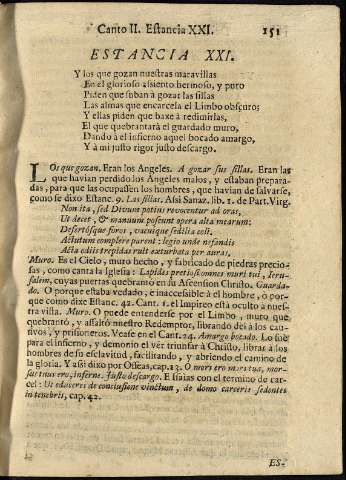 Canto II. Estancia XXI. 151
ESTANCIA XXI.
Y los que gozan nuestras maravillas
En el glorioso assiento hermoso, y puro
Piden que suban à gozar las sillas
Las almas que encarcela el Limbo obscuro;
Y ellas piden que baxe à redimirlas,
El que quebrantarà el guardado muro,
Dando à el infierno aquel bocado amargo,
Y à mi justo rigor justo descargo.
LOs que gozan. Eran los Angeles. A gozar sus sillas. Eran las
que havian perdido los Angeles malos, y estaban prepara-
das, para que las ocupassen los hombres, que havian de salvarse,
como se dixo Estanc. 9. Las sillas. Assi Sanaz. lib. 1. de Part. Virg.
Non ita, sed Divum potius revocentur ad oras,
Ut decet, & manuum poscunt opera alta mearum:
Desertosque foros, vacuique sedilia cœli.
Actutum complere parent: legio unde nefandis
Acta odiis trepidas ruit exturbata per auras.
Muro. Es el Cielo, muro hecho, y fabricado de piedras precio-
sas, como canta la Iglesia: Lapides pretiosi omnes muri tui, Jeru-
salem, cuyas puertas quebrantò en su Ascension Christo. Guarda-
do. O porque estaba vedado, e inaccessible à el hombre, ò por-
que como dixe Estanc. 42. Cant. 1. el Impireo està oculto à nues-
tra vista. Muro. O puede entenderse por el Limbo, muro que
quebrantò, y assaltò nuestro Redemptor, librando dèl à los cau-
tivos, y prisioneros. Vease en el Cant. 24. Amargo bocado. Lo fue
para el infierno, y demonio el ver triunfar à Christo, librar à los
hombres de su esclavitud, facilitando, y abriendo el camino de
la gloria. Y assi dixo por Osseas, cap. 13. O mors ero mors tua, mor-
sus tuus ero, inferne. Justo descargo. E Isaias con el termino de car-
cel: Ut educeres de conclusione vinctum, de domo carceris sedentes
in tenebris, cap. 42.
ES-